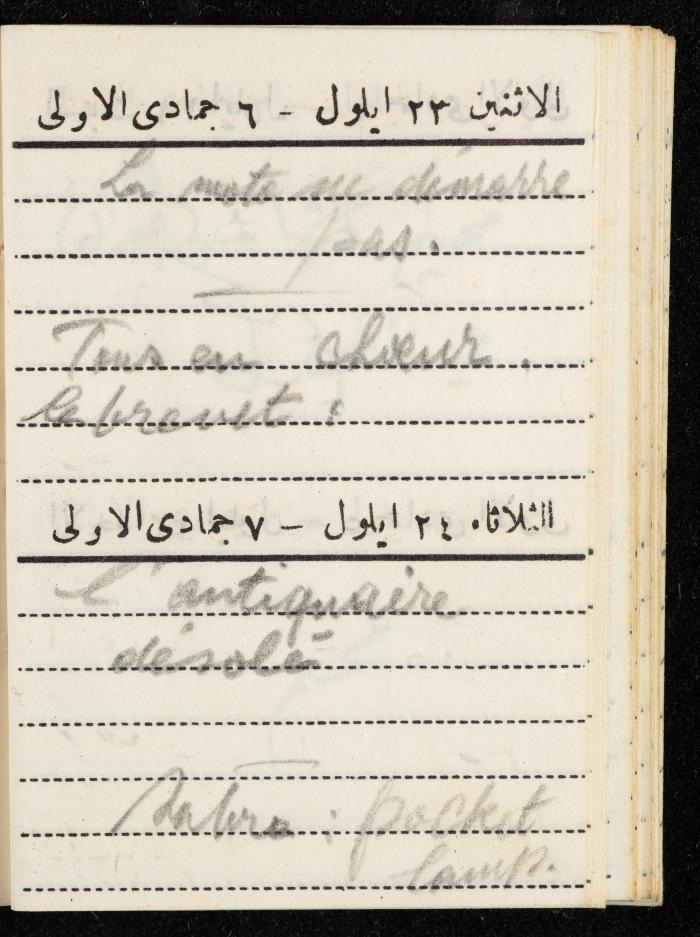 الاثنين ٢٣ ايلول - ٦ جمادى الاولى
La moto ne démarre
pas.
Tous en chœur.
Le brevet :
الثلاثاء ٢٤ ايلول - ٧ جمادى الاولى
L'antiquaire
désolé
: pocket
lamp.